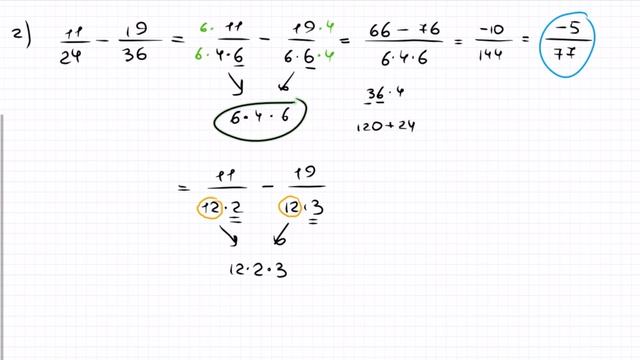 2) 11/24 - 19/36 = 6·11/6·4·6 - 19·4/6·6·4 = 66-76/6·4·6 = -10/144 = -5/77
6·4·6
36·4
120+24
= 11/12·2 - 19/12·3
12·2·3